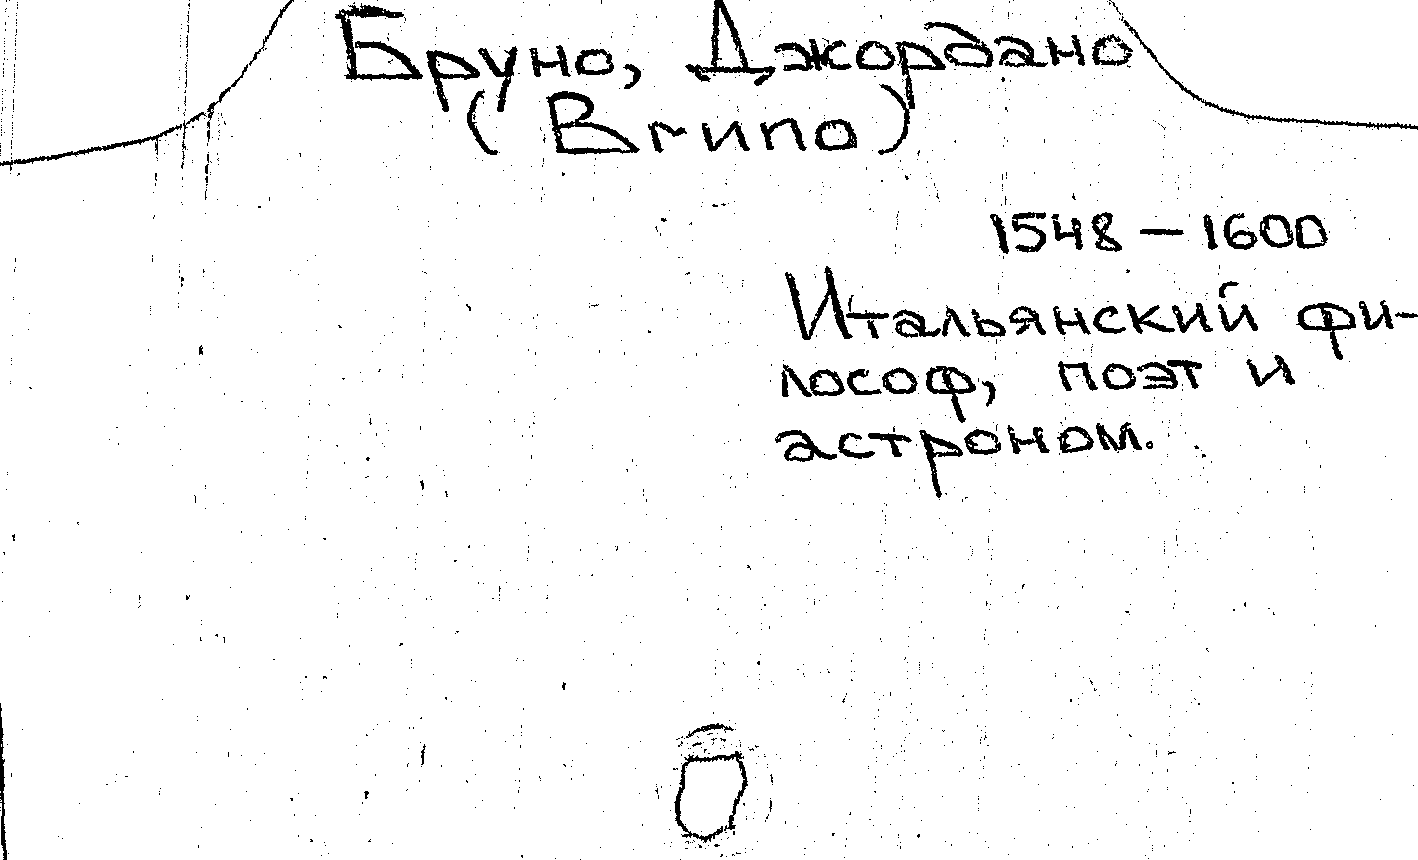 Бруно, Джордано
(Bruno)
1548 – 1600
Итальянский фи-
лософ, поэт и
астроном.